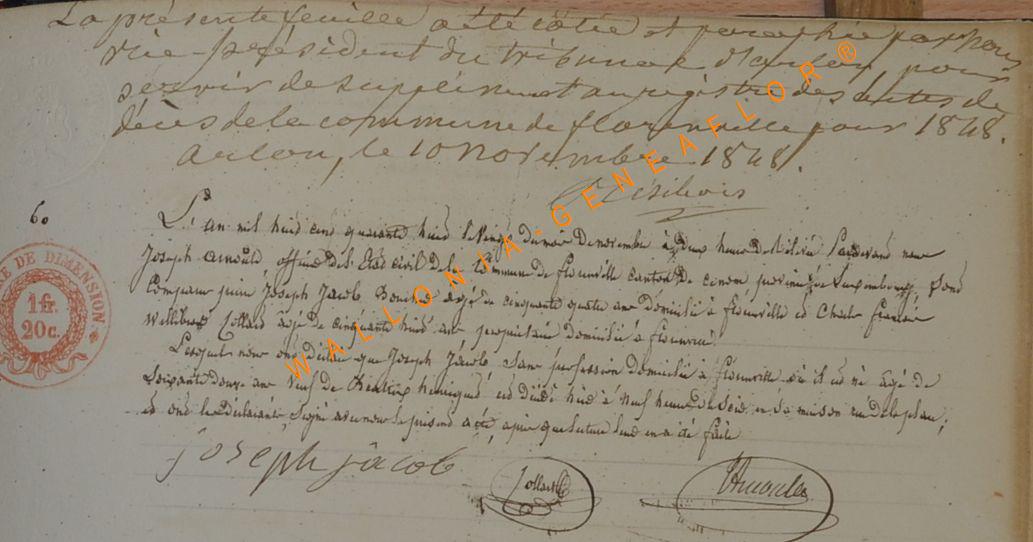 La présente feuille a été côtée et paraphée par nous
vice-président du tribunal d'arlon pour
servir de supplément au régistre des actes de
décès de la commune de florenville pour 1848.
arlon, le 10 novembre 1848.
60
L'an mil huit cent quarante huit le vingt du mois de novembre à deux heures de relevée pardevant nous
Joseph arnould officier de l'Etat civil de la Commune de florenville canton de province de Luxembourg sont
Comparus Joseph Jacob agé de cinquante quatre ans domicilié à florenville et Charles françois
Willibrord Collard âgé de cinquante huit ans propriétaire domicilié à florenville
Lesquels nous ont déclaré que Joseph Jacob sans profession domicilié à florenville où il est né âgé de
Soixante douze ans veuf de est décédé hier à neuf heures du soir en sa maison
et ont les déclarants signé avec nous le présent acte après que lecture leur en a été faite
RE DE DIMENSION
1 fr.
20c.
joseph jacob
Collard
Arnould
WALLONIA-GENEAFLOR®